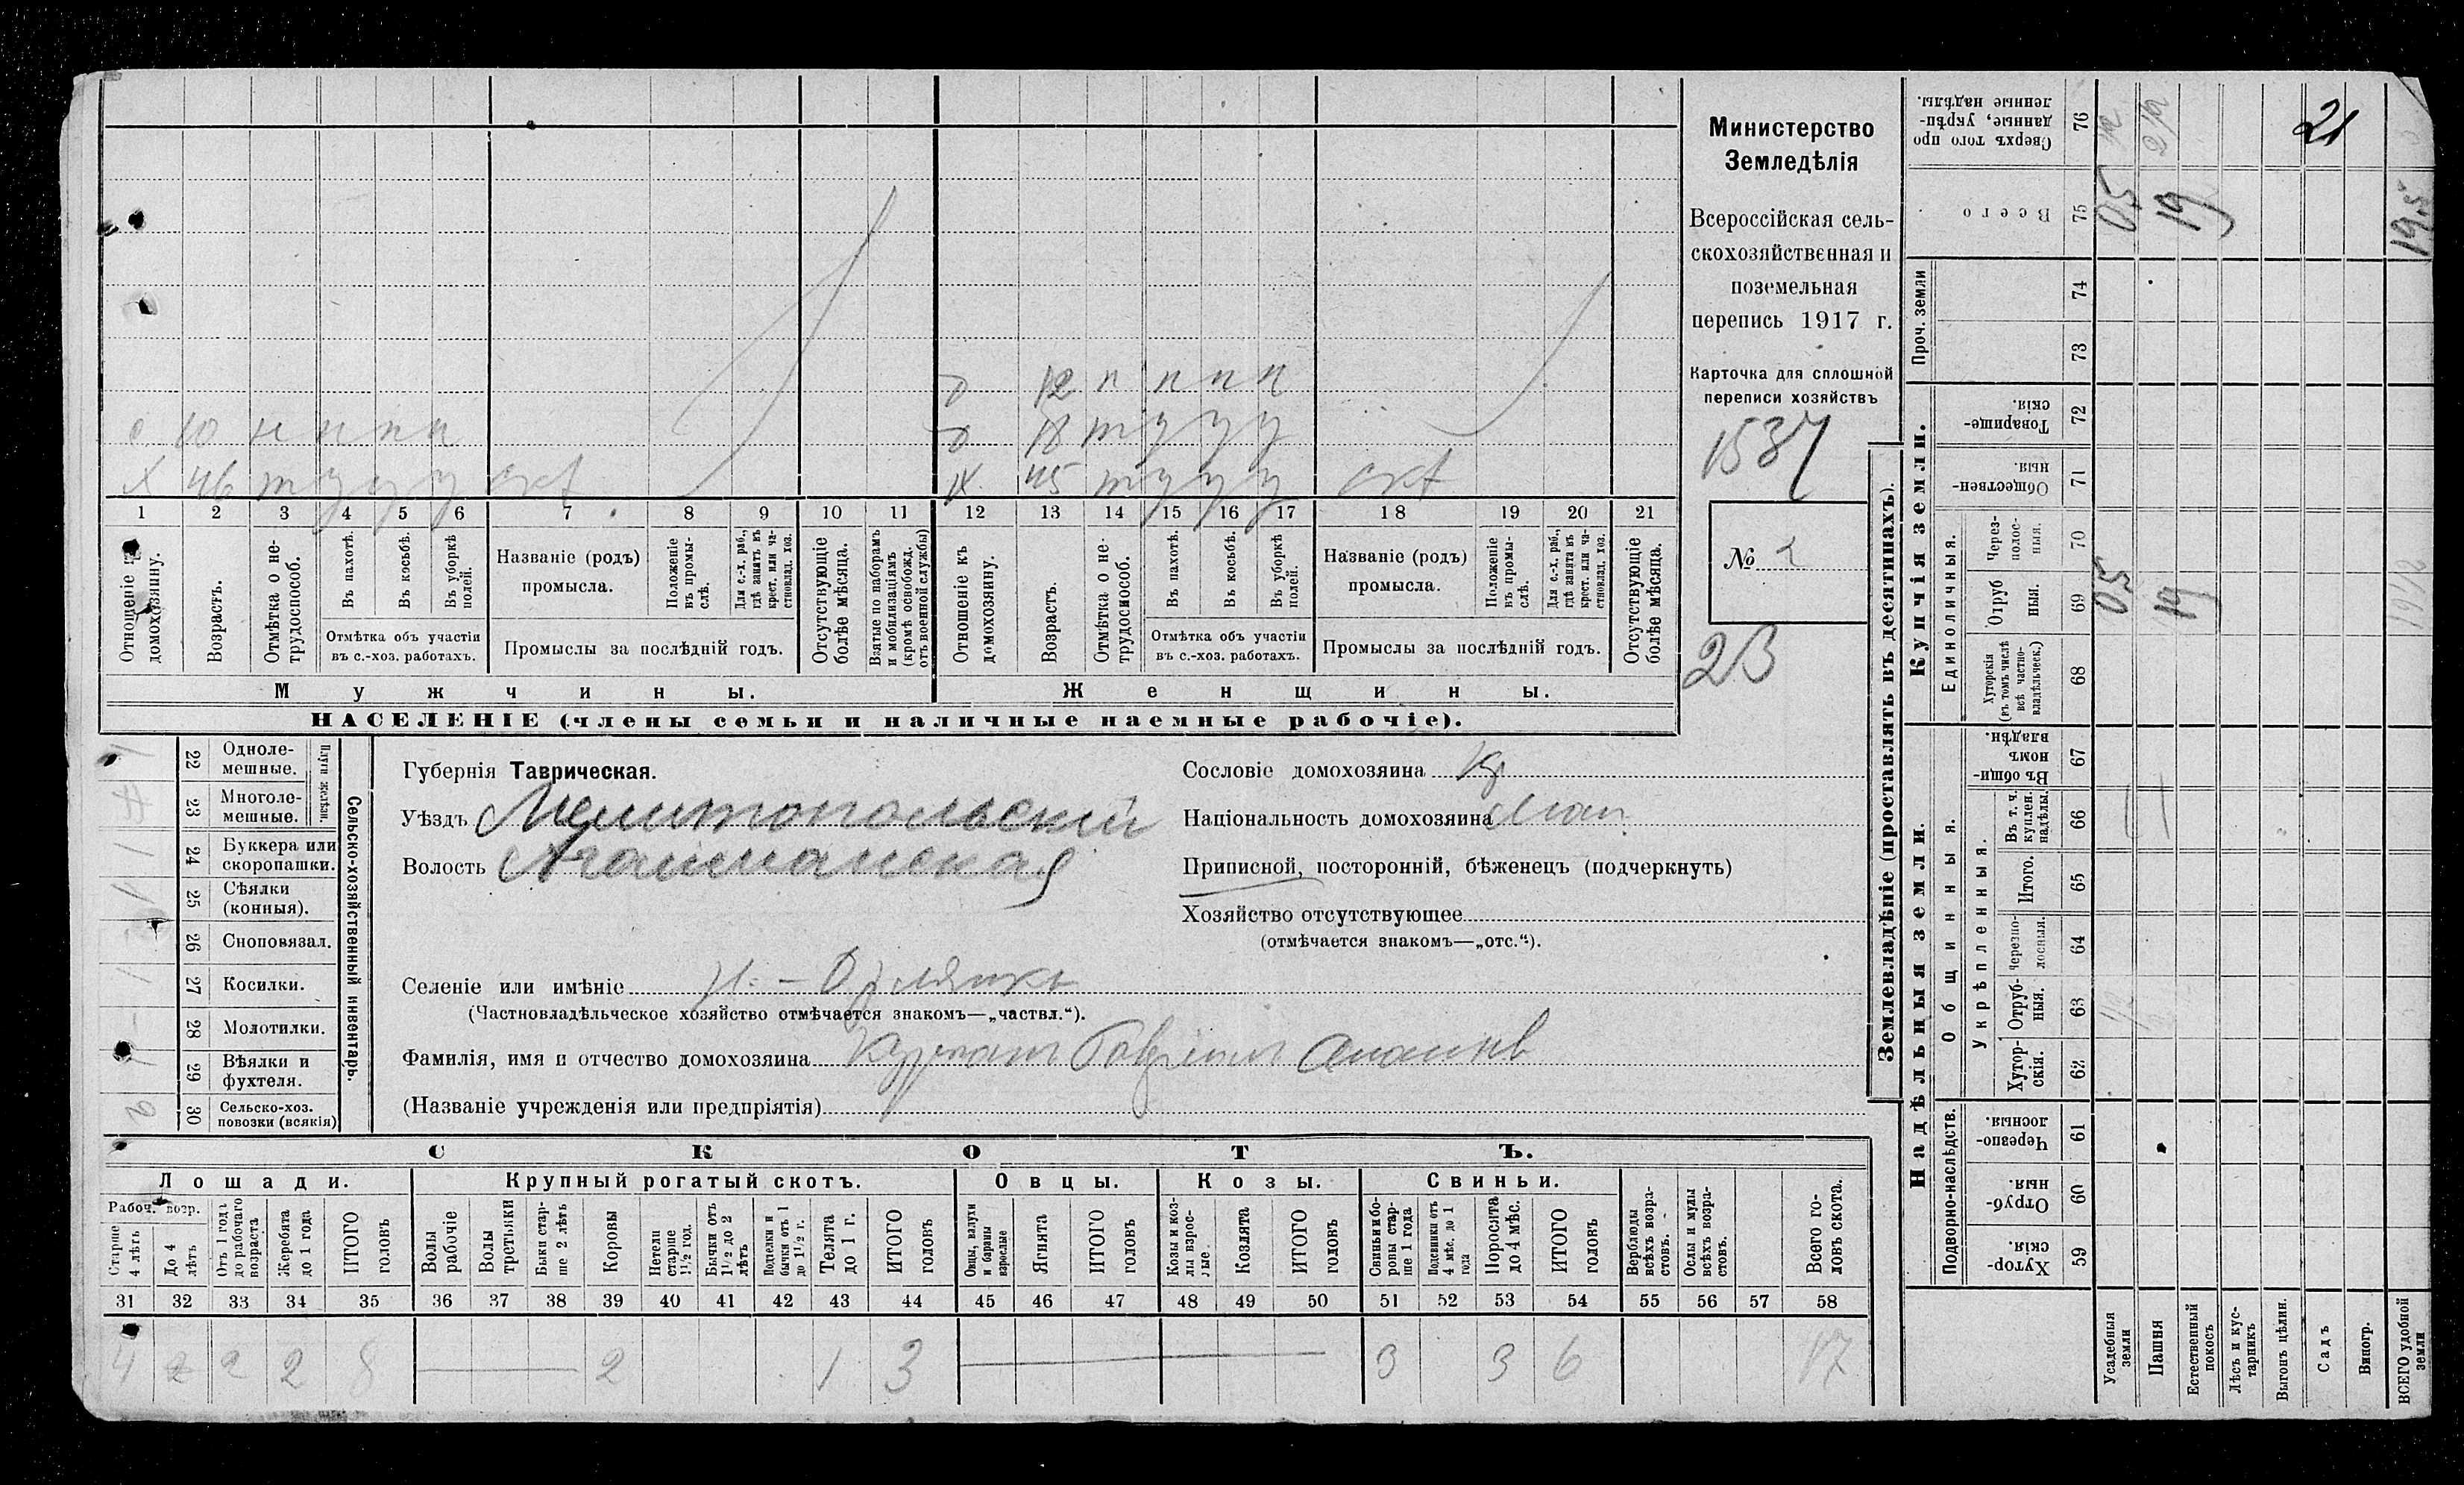 Министерство
Земледѣлія
Всероссійская сель-
скохозяйственная и
поземельная
перепись 1917 г.
Карточка для сплошной
переписи хозяйствъ
1537
№ 2
23
д 12 н н н н
с 10 н н н н
д 18 т у у у
х 46 т у у у скх
45 т у у у скх
1 2 3 4 5 6 7 8 9 10 11 12 13 14 15 16 17 18 19 20 21
Отношеніе къ домохозяину.
Возрастъ.
Отмѣтка о не-трудоспособ.
Въ пахотѣ.
Въ косьбѣ.
Въ уборкѣ полей.
Отмѣтка объ участіи
въ с.-хоз. работахъ.
Названіе (родъ)
промысла.
Положеніе въ промы-слѣ.
Для с.-х. раб., гдѣ занятъ въ крест. или ча-стновлад. хоз.
Промыслы за послѣдній годъ.
Отсутствующіе болѣе мѣсяца.
Взятые по наборамъ и мобилизаціямъ (кромѣ освобожд. отъ военной службы)
Отношеніе къ домохозяину.
Возрастъ.
Отмѣтка о не-трудоспособ.
Въ пахотѣ.
Въ косьбѣ.
Въ уборкѣ полей.
Отмѣтка объ участіи
въ с.-хоз. работахъ.
Названіе (родъ)
промысла.
Положеніе въ промы-слѣ.
Для с.-х. раб., гдѣ занята въ крест. или ча-стновлад. хоз.
Промыслы за послѣдній годъ.
Отсутствующіе болѣе мѣсяца.
Мужчины.
Женщины.
НАСЕЛЕНІЕ (члены семьи и наличные наемные рабочіе).
Сельско-хозяйственный инвентарь.
Плуги желѣзн.
22 Одноле-мешные. 1
23 Многоле-мешные.
24 Буккера или скоропашки. 1
25 Сѣялки (конныя). 1
26 Сноповязал.
27 Косилки. 1
28 Молотилки. —
29 Вѣялки и фухтеля. 1
30 Сельско-хоз. повозки (всякія) 2
Губернія Таврическая.
Уѣздъ Мелитопольскій
Волость Агайманская
Сословіе домохозяина кр
Національность домохозяина
Приписной, посторонній, бѣженецъ (подчеркнуть)
Хозяйство отсутствующее
(отмѣчается знакомъ—„отс.“).
Селеніе или имѣніе
(Частновладѣльческое хозяйство отмѣчается знакомъ—„частвл.“).
Фамилія, имя и отчество домохозяина
(Названіе учрежденія или предпріятія)
СКОТЪ.
Лошади.
Крупный рогатый скотъ.
Овцы.
Козы.
Свиньи.
Рабоч. возр.
Старше 4 лѣтъ
До 4 лѣтъ
Отъ 1 года до рабочаго возраста
Жеребята до 1 года
ИТОГО головъ
Волы рабочіе
Волы третьяки
Быки стар-ше 2 лѣтъ
Коровы
Нетели старше 1½ год.
Бычки отъ 1½ до 2 лѣтъ
Подтелки и бычки отъ 1 до 1½ г.
Телята до 1 г.
ИТОГО головъ
Овцы, валухи и бараны взрослые
Ягнята
ИТОГО головъ
Козы и коз-лы взрос-лые
Козлята
ИТОГО головъ
Свиньи и бо-ровы стар-ше 1 года
Подсвинки отъ 4 мѣс. до 1 года
Поросята до 4 мѣс.
ИТОГО головъ
Верблюды всѣхъ возра-стовъ.
Ослы и мулы всѣхъ возра-стовъ.
Всего го-ловъ скота.
31 32 33 34 35 36 37 38 39 40 41 42 43 44 45 46 47 48 49 50 51 52 53 54 55 56 57 58
4 2 2 8 — 2 1 3 — 3 3 6 17
Землевладѣніе (проставлять въ десятинахъ).
Сверхъ того про данные, укрѣп-ленные надѣлы. 76
21
Всего 75 0,5 19 19,5
Проч. земли
74
73
Купчія земли.
Товарище-скія. 72
Обществен-ныя. 71
Единоличныя.
Через-полос-ныя. 70
Отруб ныя. 69 0,5 19 19 1/2
Хуторскія (въ томъ числѣ всѣ частно-владѣльческ.) 68
Надѣльныя земли.
Общинныя.
Въ общи-номъ владѣн. 67
Укрѣпленныя.
Въ т. ч. куплен. надѣлы. 66
Итого. 65
Черезпо-лосныя. 64
Отруб-ныя. 63
Хутор-скія. 62
Подворно-наслѣдств.
Черезпо-лосныя. 61
Отруб-ныя. 60
Хутор-скія. 59
Усадебныя земли
Пашня
Естественный покосъ
Лѣсъ и кус-тарникъ
Выгонъ цѣлин.
Садъ
Виногр.
ВСЕГО удобной земли